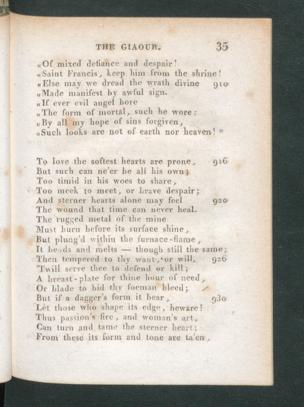 THE GIAOUR. 35
„Of mixed defiance and despair!
„Saint Francis, keep him from the shrine!
„Else may we dread the wrath divine 910
„Made manifest by awful sign.
„If ever evil angel bore
„The form of mortal, such he wore:
„By all my hope of sins forgiven,
„Such looks are not of earth nor heaven!"
To love the softest hearts are prone, 916
But such can ne'er be all his own;
Too timid in his woes to share,
Too meek to meet, or brave despair;
And sterner hearts alone may feel 920
The wound that time can never heal.
The rugged metal of the mine
Must burn before its surface shine,
But plung'd within the furnace-flame,
It bends and melts — though still the same;
Then tempered to thy want, or will, 926
'Twill serve thee to defend or kill;
A breast-plate for thine hour of need,
Or blade to bid thy foeman bleed;
But if a dagger's form it bear, 930
Let those who shape its edge, beware!
Thus passion's fire, and woman's art,
Can turn and tame the sterner heart;
From these its form and tone are ta'en,